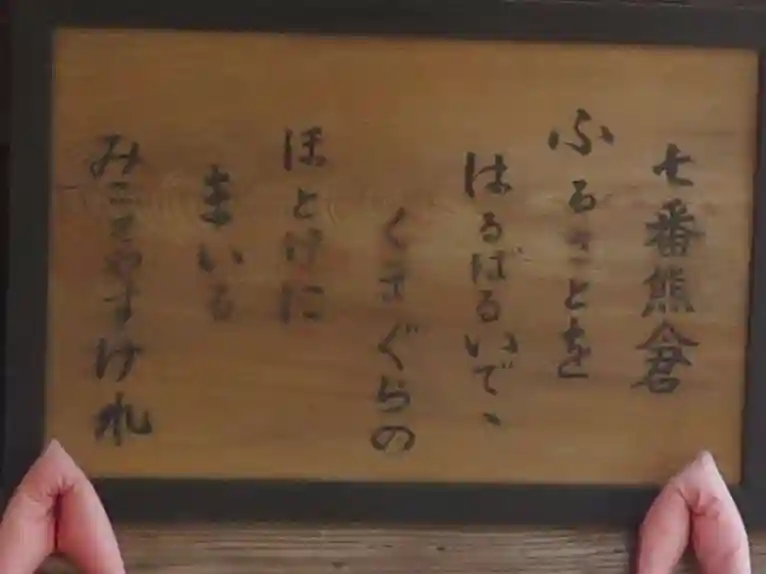 七番熊倉
ふるさとを
はるばるいでゝ
くまぐらの
ほとけに
まいる
みこそやすけれ